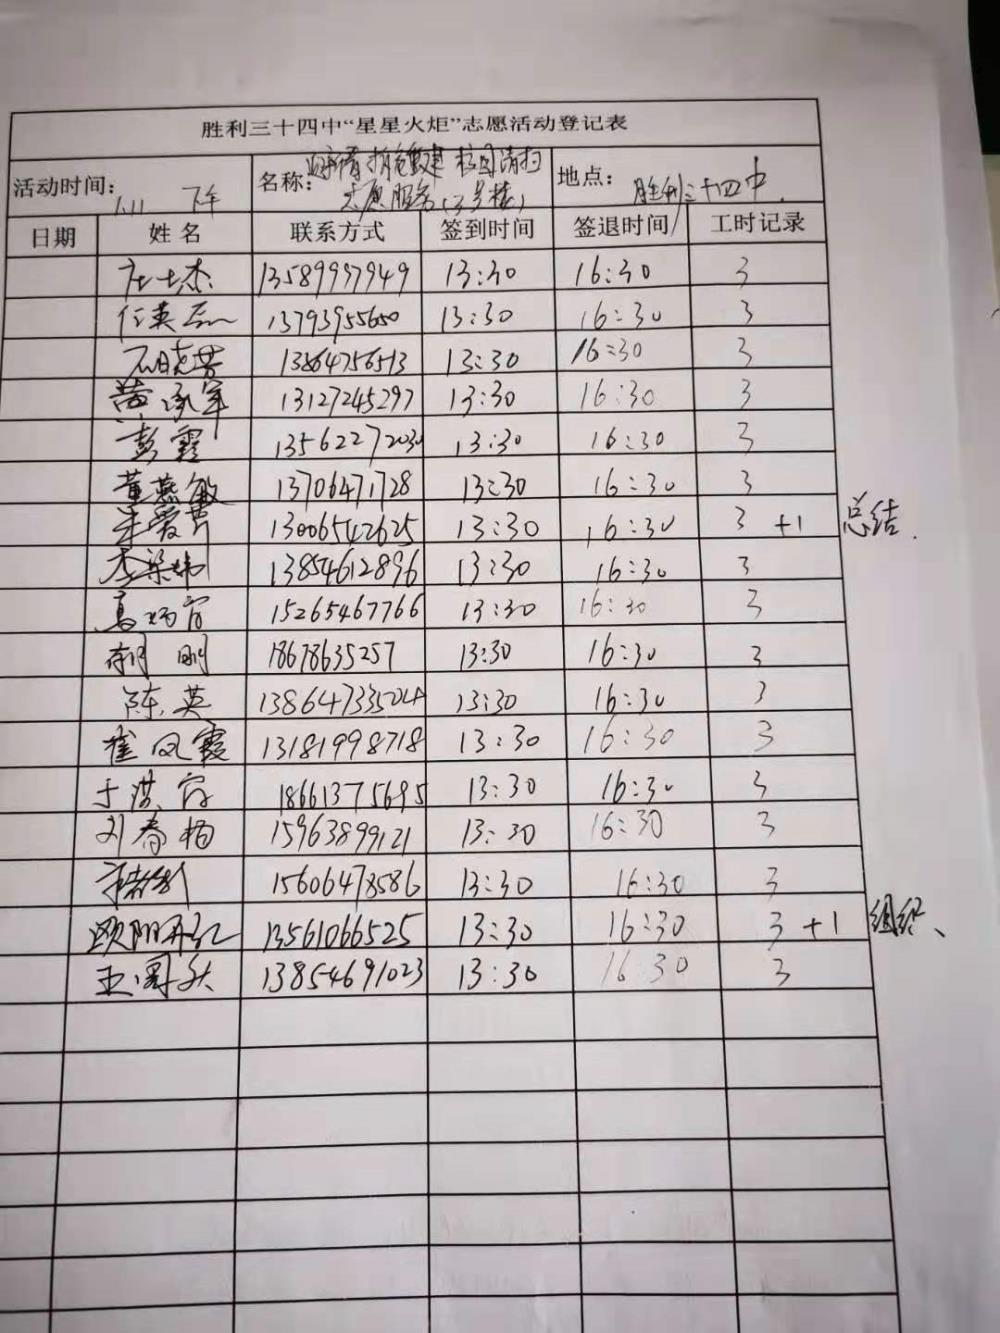 胜利三十四中“星星火炬”志愿活动登记表
活动时间: 1.11 下午 名称: 校园清扫 地点: 胜利三十四中
志愿服务(3号楼)
日期 姓名 联系方式 签到时间 签退时间 工时记录
13589997949 13:30 16:30 3
13793955650 13:30 16:30 3
13864756513 13:30 16:30 3
黄承军 13127245297 13:30 16:30 3
彭霞 13562272030 13:30 16:30 3
黄燕敏 13706471728 13:30 16:30 3
13006542625 13:30 16:30 3 +1 总结.
李梁娟 13854612896 13:30 16:30 3
15265467766 13:30 16:30 3
18678635257 13:30 16:30 3
陈英 13864733504 13:30 16:30 3
崔凤霞 13181998718 13:30 16:30 3
于洪 18661375695 13:30 16:30 3
刘春梅 15963899121 13:30 16:30 3
15606478586 13:30 16:30 3
欧阳 13561066525 13:30 16:30 3 +1 组织、
13854691023 13:30 16:30 3